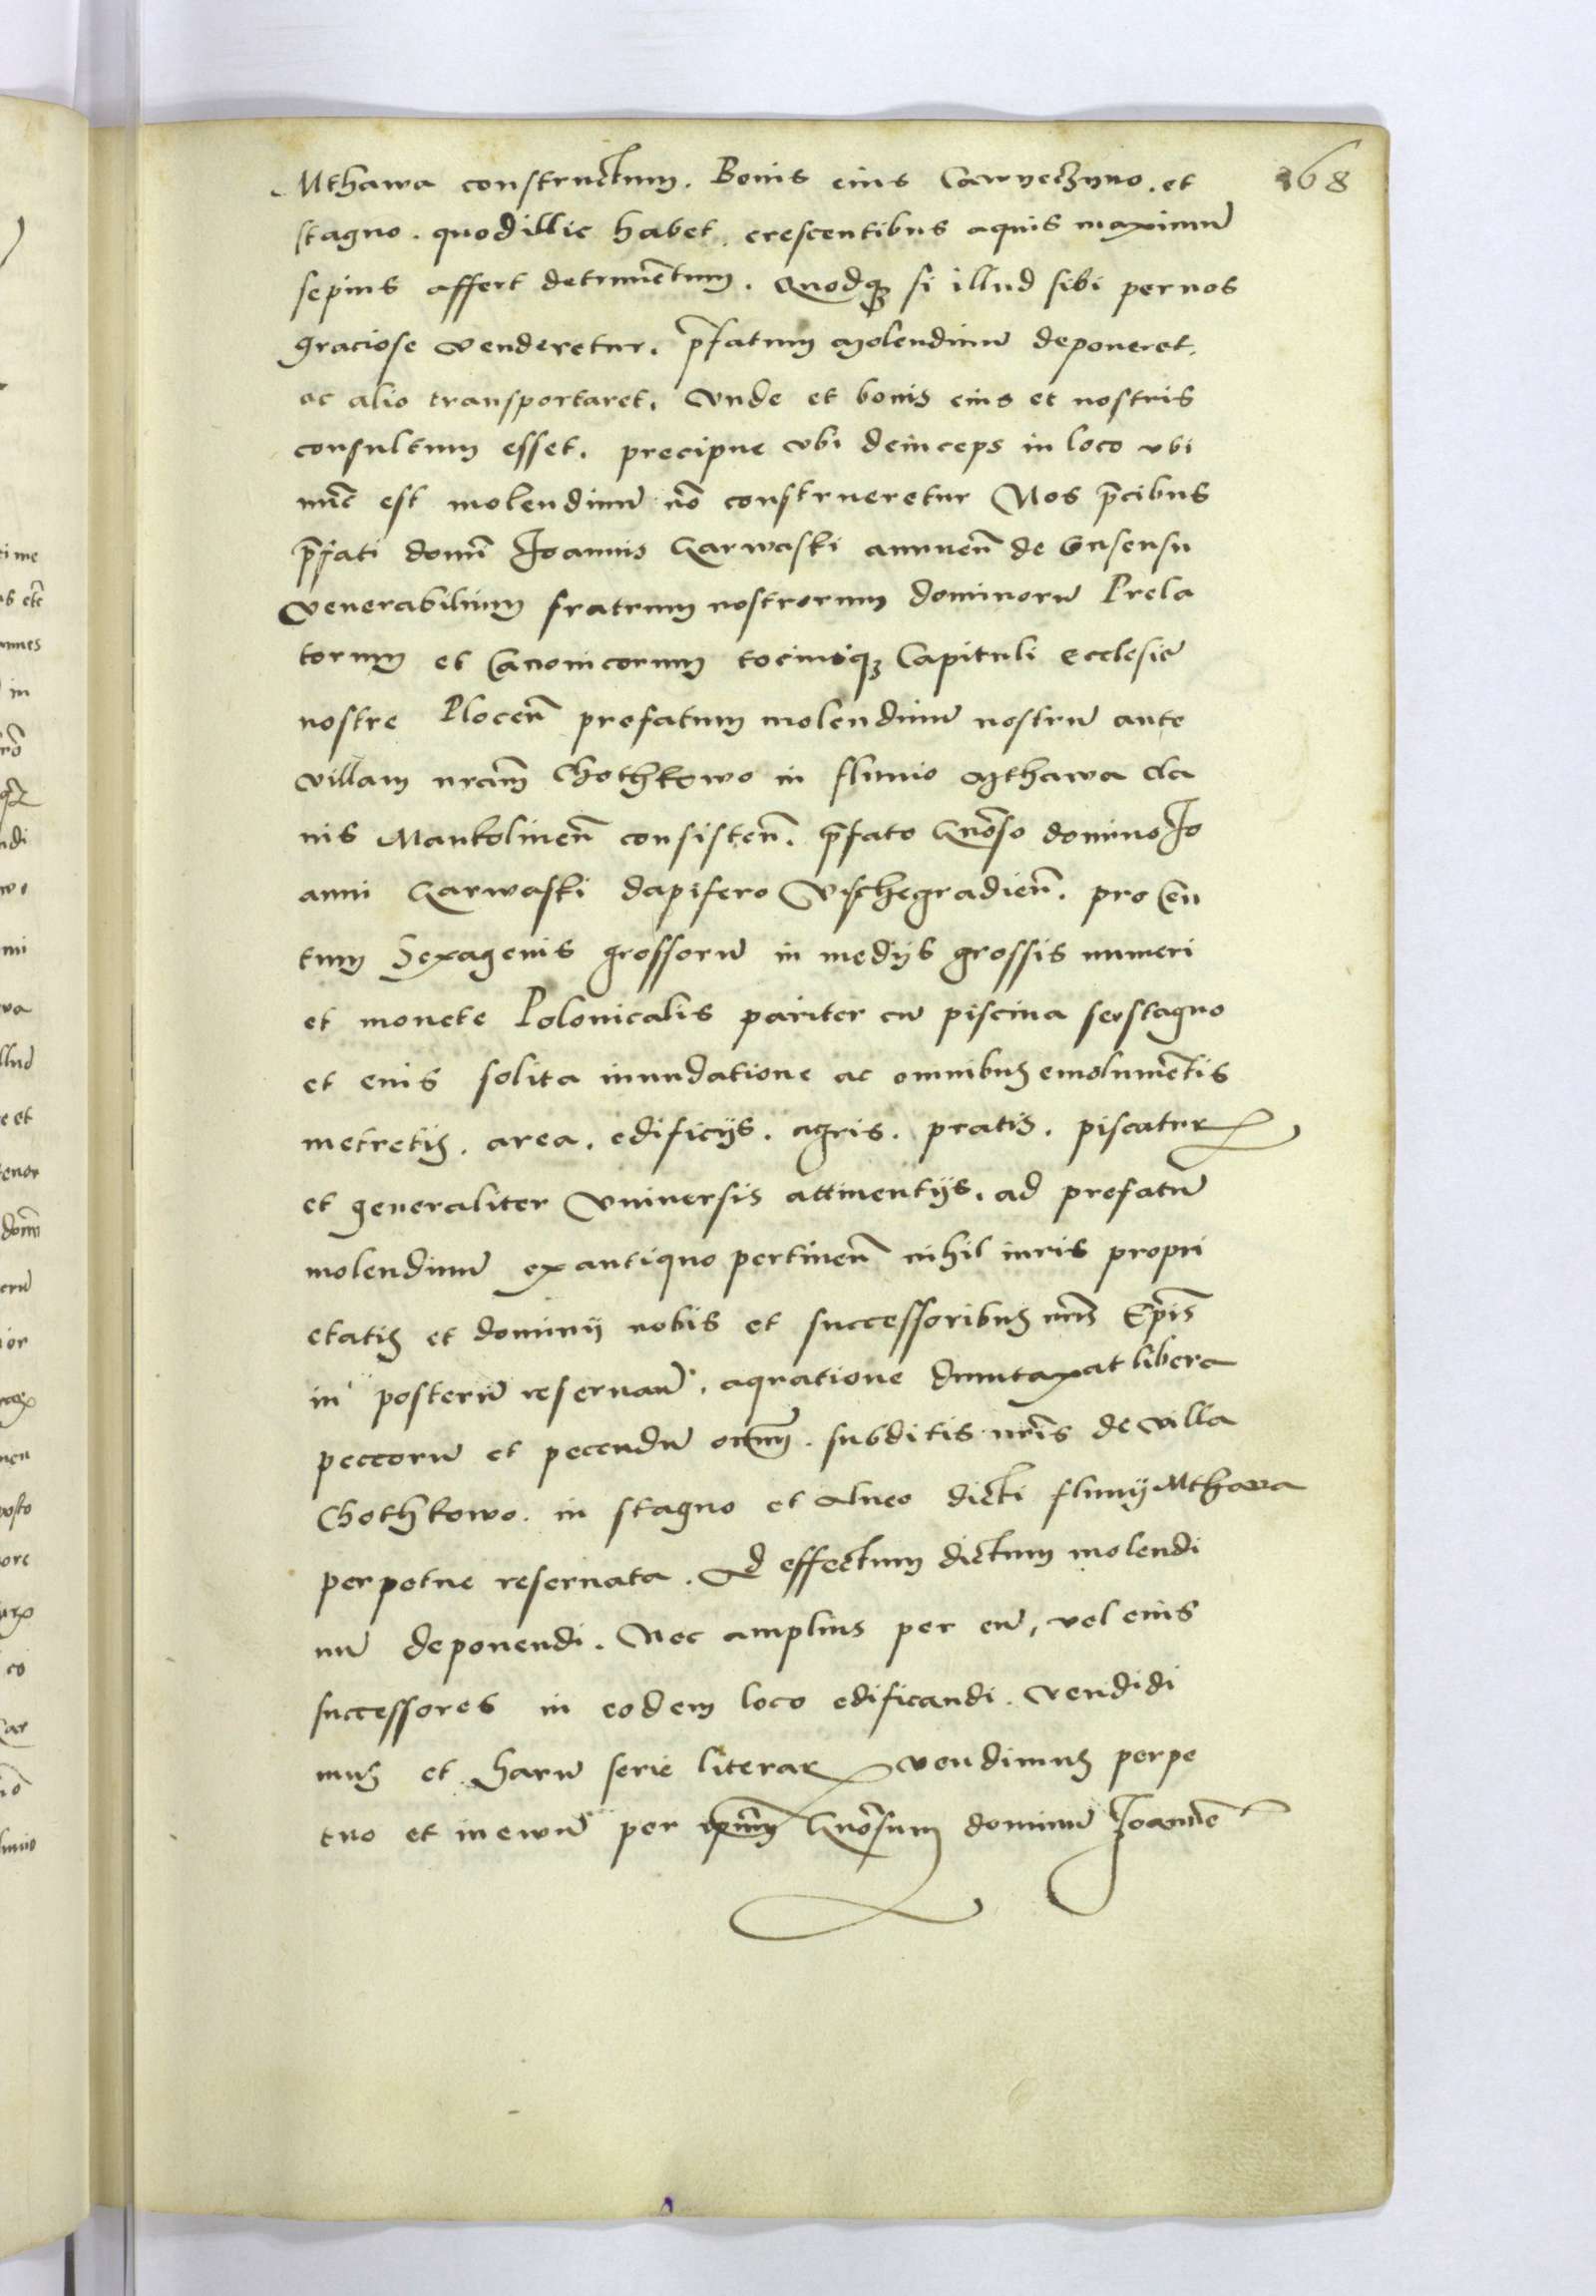 368
Mthawa constructum. Bonis eius Carnyeczyno. et
stagno. quod illic habet. crescentibus aquis maximū
sepius affert detrimētum. Quodq₃ si illud sibi per nos
graciose venderetur. p̄fatum molendinū deponeret.
ac alio transportaret. Vnde et bonis eius et nostris
consultum esset. precipue vbi deinceps in loco vbi
nūc est molendinū nō construeretur Nos p̄cibus
p̄fati domī Joannis Garwaski annuen̄ de cōnsensu
venerabilium fratrum nostrorum dominorū Prela
torum et Canonicorum tociusq₃ Capituli ecclesie
nostre Plocen̄ prefatum molendinū nostrū ante
villam nr̄am Chothkowo in fluuio Mthawa cla
uis Mankolinen̄ consisten̄. p̄fato Gn̄oso domino Jo
anni Garwaski dapifero Vischegradien̄. pro Cen
tum Sexagenis grossorū in medijs grossis numeri
et monete Polonicalis pariter cū piscina seu stagno
et eius solita inundatione ac omnibus emolumētis
metretis. area. edificijs. agris. pratis. piscatur
et generaliter vniuersis attinentijs. ad prefatū
molendinū ex antiquo pertinen̄ nihil iuris propri
etatis et dominij nobis et successoribus nr̄is Ep̄is
in posterū reseruan̄. aquatione dumtaxat libera
peccorū et pecudū om̄m. subditis nr̄is de villa
Chothkowo. in stagno et alueo dicti fluuij Mthawa
perpetue reseruata. Ad effectum dictum molendi
nū deponendi. Nec amplius per eū, vel eius
successores in eodem loco edificandi. vendidi
mus et harū serie literar vendimus perpe
tuo et in ewū per Gn̄osum dominū Joannē